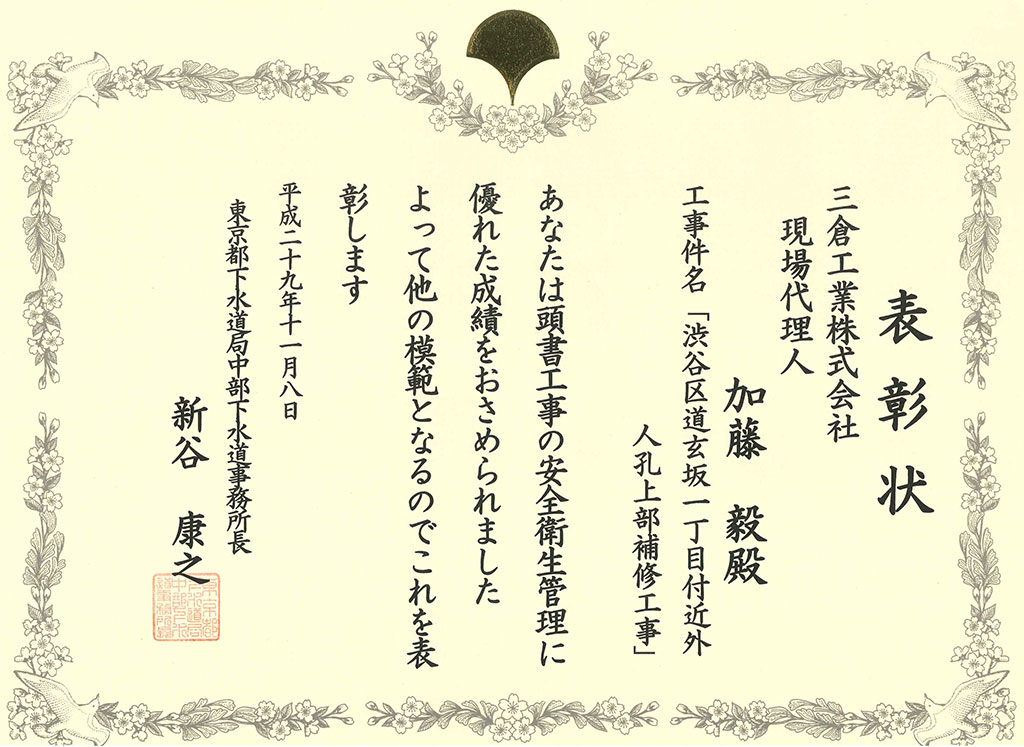 表彰状
三倉工業株式会社
現場代理人
加藤 毅殿
工事件名「渋谷区道玄坂一丁目付近外
人孔上部補修工事」
あなたは頭書工事の安全衛生管理に
優れた成績をおさめられました
よって他の模範となるのでこれを表
彰します
平成二十九年十一月八日
東京都下水道局中部下水道事務所長
新谷 康之